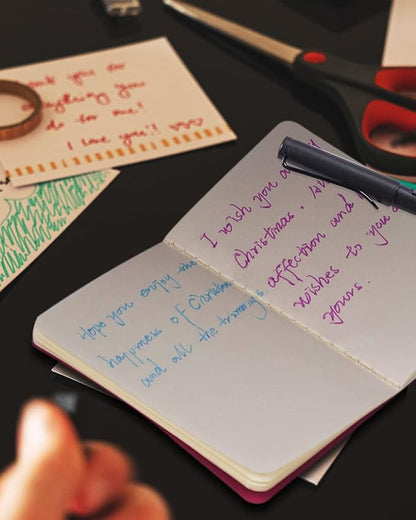 Thank you for
everything you
do for me!
I love you!!
Hope you enjoy the
happiness of Christmas
and all the trimmings
I wish you a
Christmas. A
affection and
wishes to you a
yours.